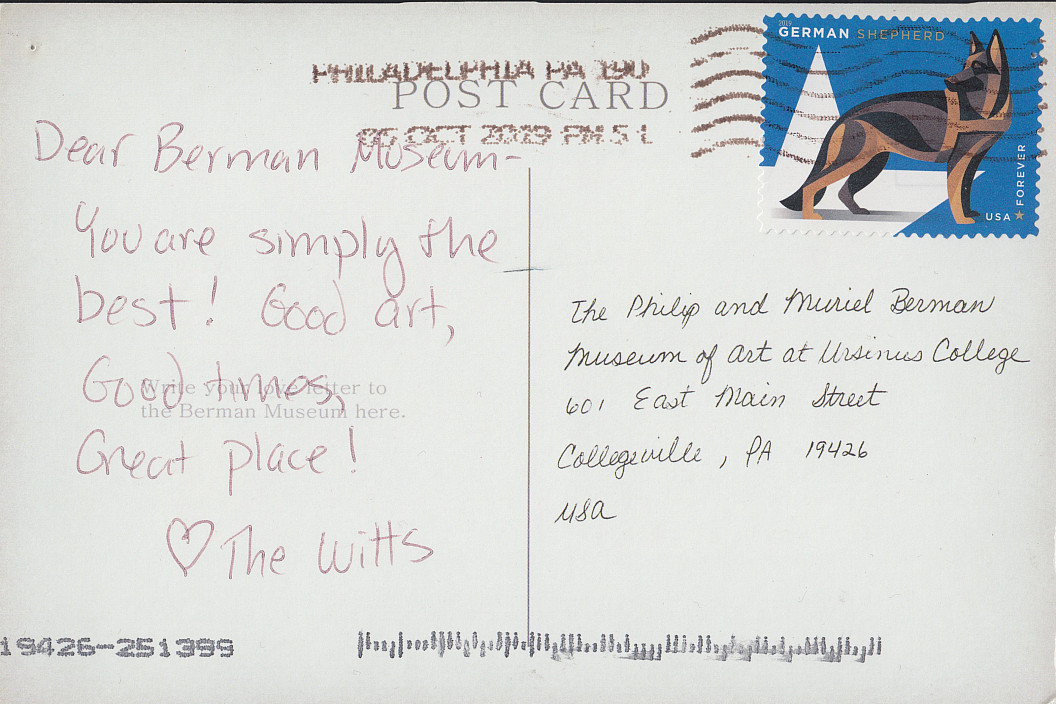 2019
GERMAN SHEPHERD
PHILADELPHIA PA 190
POST CARD
06 OCT 2019 PM 5 L
USA ★ FOREVER
Dear Berman Museum-
You are simply the
best! Good art,
Good times,
Great place!
♡ The Witts
Write your love letter to
the Berman Museum here.
The Philip and Muriel Berman
Museum of Art at Ursinus College
601 East Main Street
Collegeville, PA 19426
USA
19426-251399